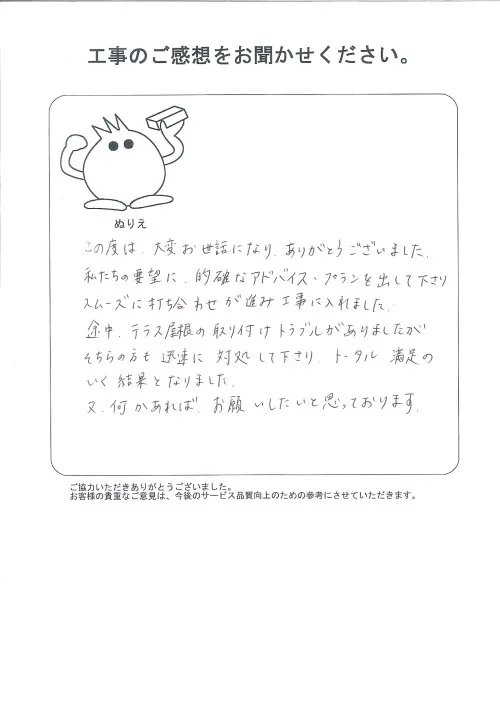 工事のご感想をお聞かせください。
ぬりえ
この度は、大変お世話になり、ありがとうございました。
私たちの要望に、的確なアドバイス・プランを出して下さり
スムーズに打ち合わせが進み工事に入れました。
途中、テラス屋根の取り付けトラブルがありましたが
そちらの方も迅速に対処して下さり、トータル満足の
いく結果となりました。
又、何かあれば、お願いしたいと思っております。
ご協力いただきありがとうございました。
お客様の貴重なご意見は、今後のサービス品質向上のための参考にさせていただきます。